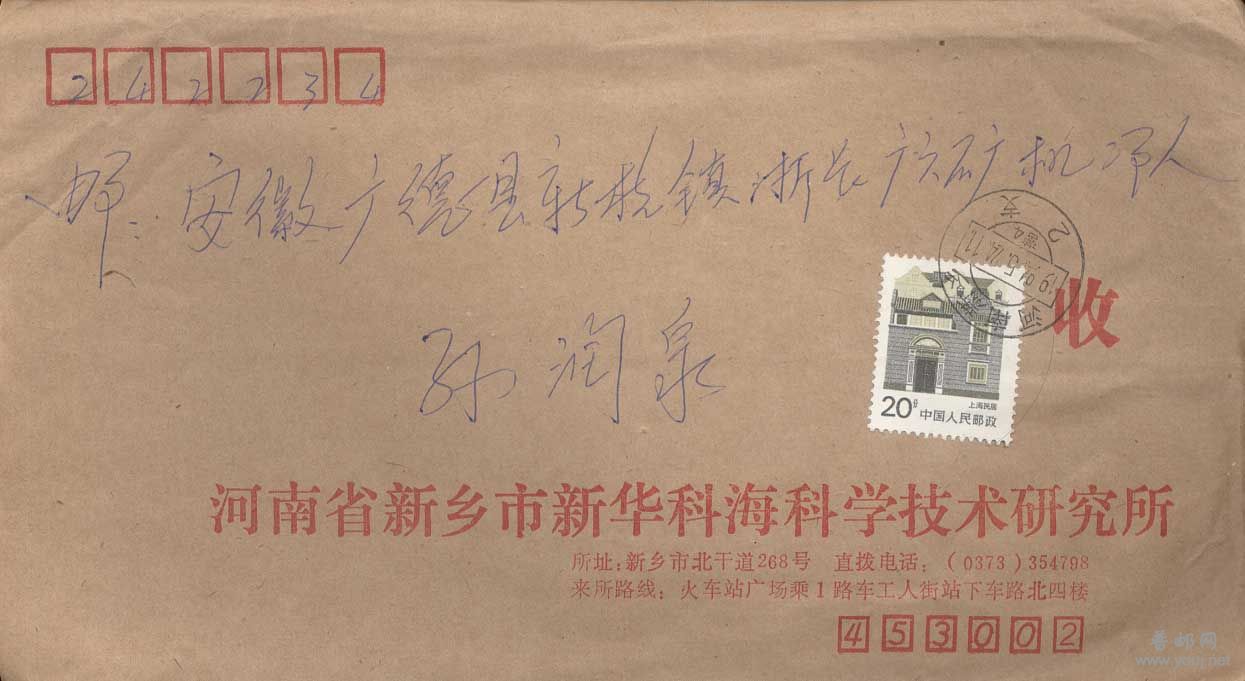 242234
邮：安徽广德县新杭镇浙长广六矿机
孙润泉
收
河南
20分
上海民居
中国人民邮政
河南省新乡市新华科海科学技术研究所
所址：新乡市北干道268号 直拨电话：（0373）354798
来所路线：火车站广场乘1路车工人街站下车路北四楼
453002
普邮网
www.youj.net